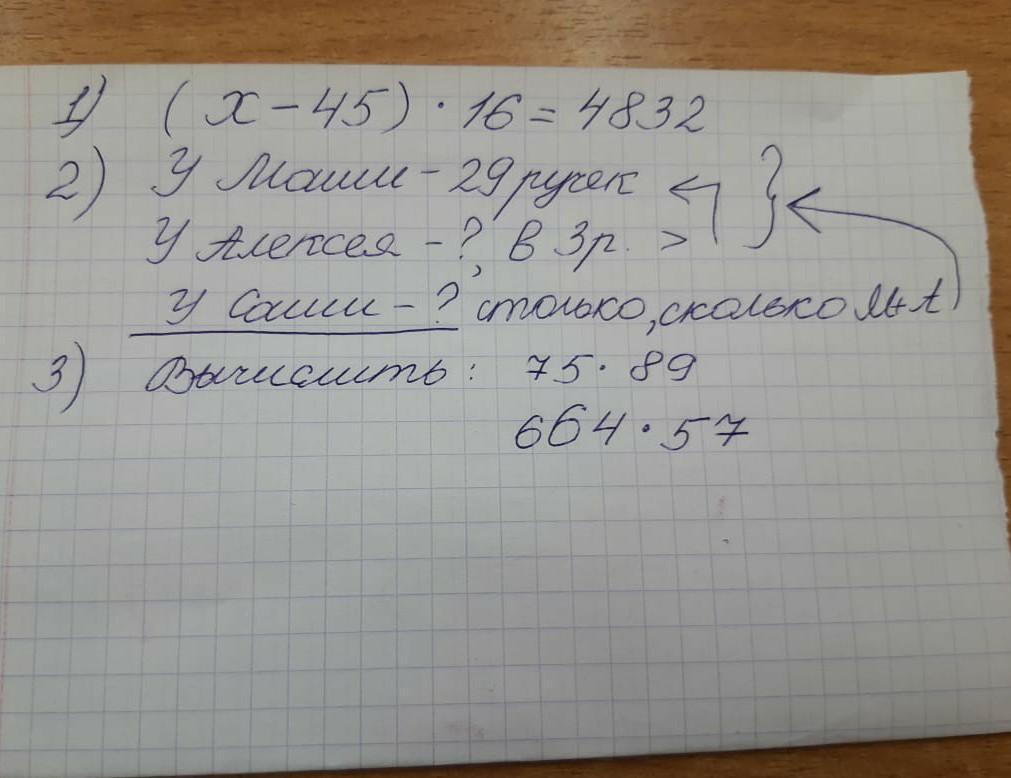 1) (x - 45) · 16 = 4832
2) У Маши - 29 ручек
У Алексея - ?, в 3 р. >
У Саши - ? столько, сколько М+А
3) Вычислить: 75 · 89
664 · 57